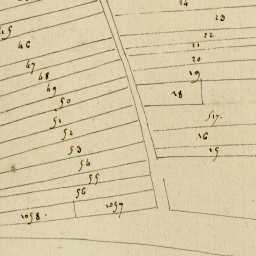 24
23
22
21
45
46
20
47
48
19
49
18
50
51
517.
52
16
53
15
54
55
56
1098.
1097